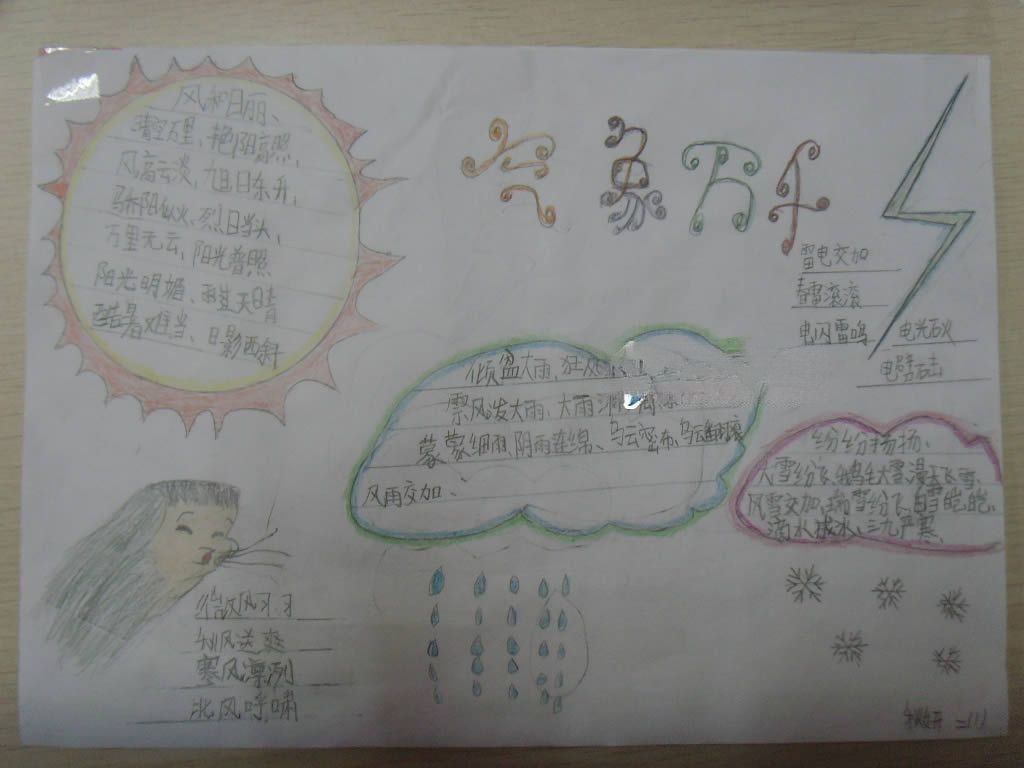 气象万千
风和日丽、
晴空万里、艳阳高照、
风高云淡、旭日东升、
骄阳似火、烈日当头、
万里无云、阳光普照
阳光明媚、雨过天晴
酷暑难当、日影西斜
雷电交加
春雷滚滚
电闪雷鸣 电光石火
电
倾盆大雨、狂风
票风泼大雨、大雨
蒙蒙细雨、阴雨连绵、乌云密布、乌云
风雨交加、
纷纷扬扬、
大雪纷飞、鹅毛大雪、漫天飞雪、
风雪交加、瑞雪纷飞、白雪皑皑、
滴水成冰、三九严寒
微风习习
秋风送爽
寒风凛冽
北风呼啸